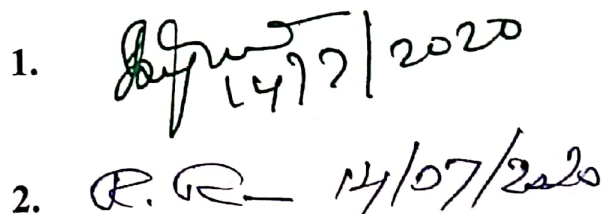 1. 14/7/2020
2. R. R 14/07/2020